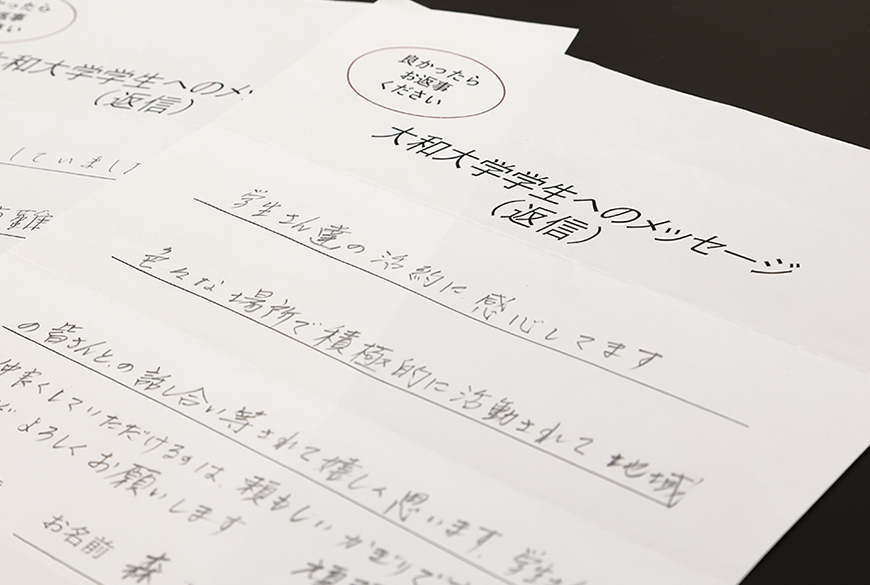 ったら
返事
さい
大和大学学生へのメ
(返信)
していまし
難
良かったら
お返事
ください
大和大学学生へのメッセージ
(返信)
学生さん達の活約に感心してます
色々な場所で積極的に活動されて地域
の皆さんとの話し合い等されて嬉しく思います。学生さん
仲良くしていただけるのは、頼もしいかぎりで
よろしくお願いします
お名前 森